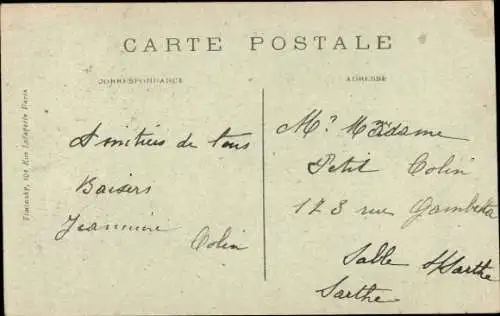 CARTE POSTALE
CORRESPONDANCE
ADRESSE
Amitiés de tous
Baisers
Jeannine
Colin
Mr Madame
Petit Colin
123 rue Gambetta
Sablé s/Sarthe
Sarthe
Rue Lafayette Paris